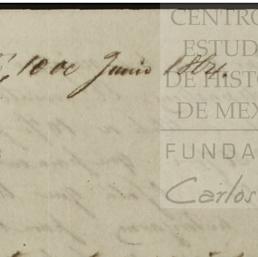 CENTRO
ESTUD
DE HISTO
DE MEX
FUNDA
Carlos
10 de Junio 1864.